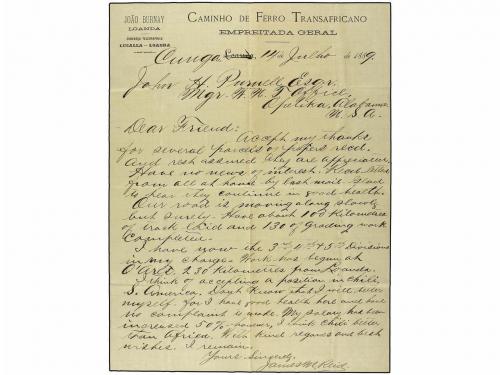 JOÃO BURNAY
LOANDA
LUCALLA - LOANDA
CAMINHO DE FERRO TRANSAFRICANO
EMPREITADA GERAL
Cunga Loanda, 14 de Julho de 1889.
John H. Purnell Esqr.
Mgr. W. U. T. Office,
Opelika, Alabama
U. S. A.
Dear Friend:
Accept my thanks
for several parcels of papers recd.
And rest assured they are appreciated.
Have no news of interest. Recd letters
from all at home by last mail. Glad
to hear they continue in good health.
Our road is moving along slowly
but surely. Have about 100 Kilometers
of track laid and 130 of grading work
Completed.
I have now the 3rd, 4th & 5th Divisions
in my charge. Work has begun at
230 Kilometres from Loanda.
I think of accepting a position in Chili,
S. America. Don't Know that I will better
myself. For I have good health here and have
no complaint to make. My salary has been
increased 50% however, I think Chili better
than Africa. With kind regards and best
wishes. I remain.
Yours Sincerely,
James M. Reid